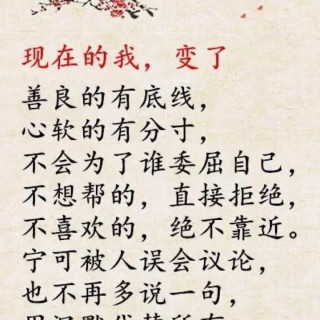 现在的我，变了
善良的有底线，
心软的有分寸，
不会为了谁委屈自己，
不想帮的，直接拒绝，
不喜欢的，绝不靠近。
宁可被人误会议论，
也不再多说一句，